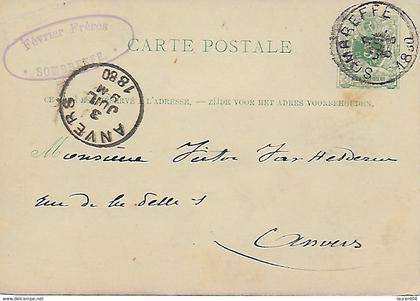 Février Frères
SOMBREFFE
CARTE POSTALE
SOMBREFFE
1880
CE CÔTÉ EST RÉSERVÉ À L'ADRESSE. — ZIJDE VOOR HET ADRES VOORBEHOUDEN.
ANVERS
JUIL
1880
Monsieur Victor Van
rue de la
Anvers